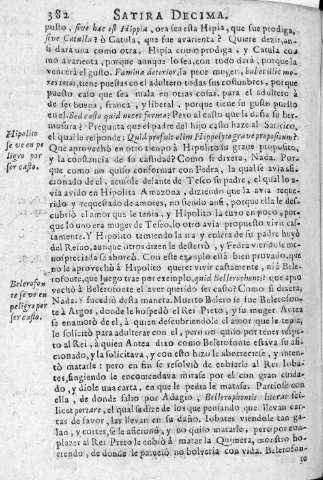 382 SATIRA DECIMA.
puesto, sive hæc est Hippia, ora sea esta Hipia, que fue prodiga,
sive Catulla? ò Catula, que fue avarienta? Quiere dezir, an-
si dara una como otra. Hipia como prodiga, y Catula co-
mo avarienta, porque aunque lo sea, con todo dará, porque la
vencerá el gusto. Fæmina deterior, la peor muger, habet illic mo-
res totos, tiene puestas en el adultero todas sus costumbres, porque
puesto caso que sea mala en otras cosas, para el adultero à
de ser buena, franca, y liberal, porque tiene su gusto puesto
en el. Sed casto quid nocet forma? Pero al casto que le daña su her-
mosura? Pregunta que el padre del hijo casto haze al Satirico,
el qual le responde: Quid profuit olim Hippolyto grave propositum?
Que aprovechò en otro tiempo à Hipolito su grave proposito,
y la constancia de su castidad? Como si dixera, Nada. Por-
que como no quiso conformar con Fedra, la qual le avia afi-
cionado de el, ausente delante de Teseo su padre, el qual lo a-
via avido en Hipolita Amazona, diziendo que la avia reque-
rido y requestado de amores, no siendo ansi, porque ella le des-
cubriò el amor que le tenia, y Hipolito la tuvo en poco, por-
que lo uno era muger de Teseo, lo otro avia proposito vivir cas-
tamente. Y Hipolito temiendo la ira y colera de su padre huyò
del Reino, aunque otros dizen le desterrò, y Fedra viendose me-
nospreciada se ahorcò. Con este exemplo està bien provado, que
no le aprovechò à Hipolito querer vivir castamente, ni à Bele-
rofonte, que luego trae por exemplo, quid Bellerophonti? que apro-
vechò à Belerofonte el aver querido ser casto? Como si dixera,
Nada. Y sucediò desta manera. Muerto Belero se fue Belerofon-
te à Argos, donde le hospedò el Rei Preto, y su muger Antea
se enamorò de el, à quien descubriendole el amor que le tenia,
le solicitò para adulterar con el, pero no quiso por tener respe-
to al Rei, à quien Antea dixo como Belerofonte estava su afi-
cionado, y la solicitava, y con esto hizo le aborreciese, y inten-
tò matarle: pero en fin se resolviò de enbiarle al Rei Ioba-
tes, fingiendo le encomendava mirase por el con gran cuida-
do, y diole una carta, en que le pedia le matase. Partiose con
ella, de donde salio por Adagio, Bellerophontis literas sci-
licet portare, el qual se dize de los que pensando que llevan car-
tas de favor, las llevan en su daño. Iobates viendole tan ga-
lan, y cortes, se le aficionò, y no quiso matarle, pero por con-
plazer al Rei Preto le enbiò à matar la Quimera, monstro ho-
rrendo, de donde le pareciò no bolveria con vida. Belerofon-
to
Hipolito
se ve en pe
ligro por
ser casto.
Belerofon
te se ve en
peligro por
ser casto.